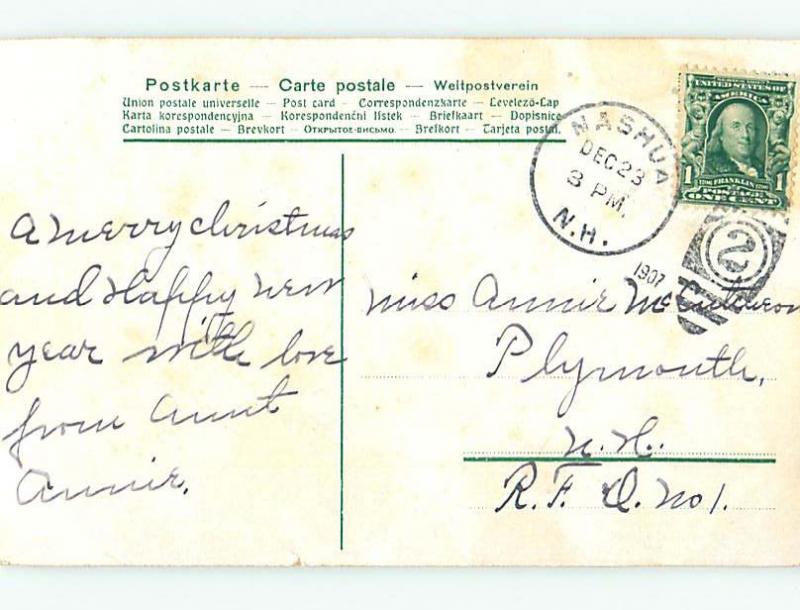 Postkarte — Carte postale — Weltpostverein
Union postale universelle — Post card — Correspondenzkarte — Levelezö-Lap
Karta korespondencyjna — Korespondenční lístek — Briefkaart — Dopisnica
Cartolina postale — Brevkort — Открытое письмо — Brefkort — Tarjeta postal.
UNITED STATES OF
AMERICA
1 FRANKLIN 1
POSTAGE
ONE CENT
NASHUA
DEC 23
3 PM.
N.H.
1907
2
A Merry Christmas
and Happy New
year with love
from Aunt
Annie.
Miss Annie
Plymouth,
N. H.
R. F. D. No 1.